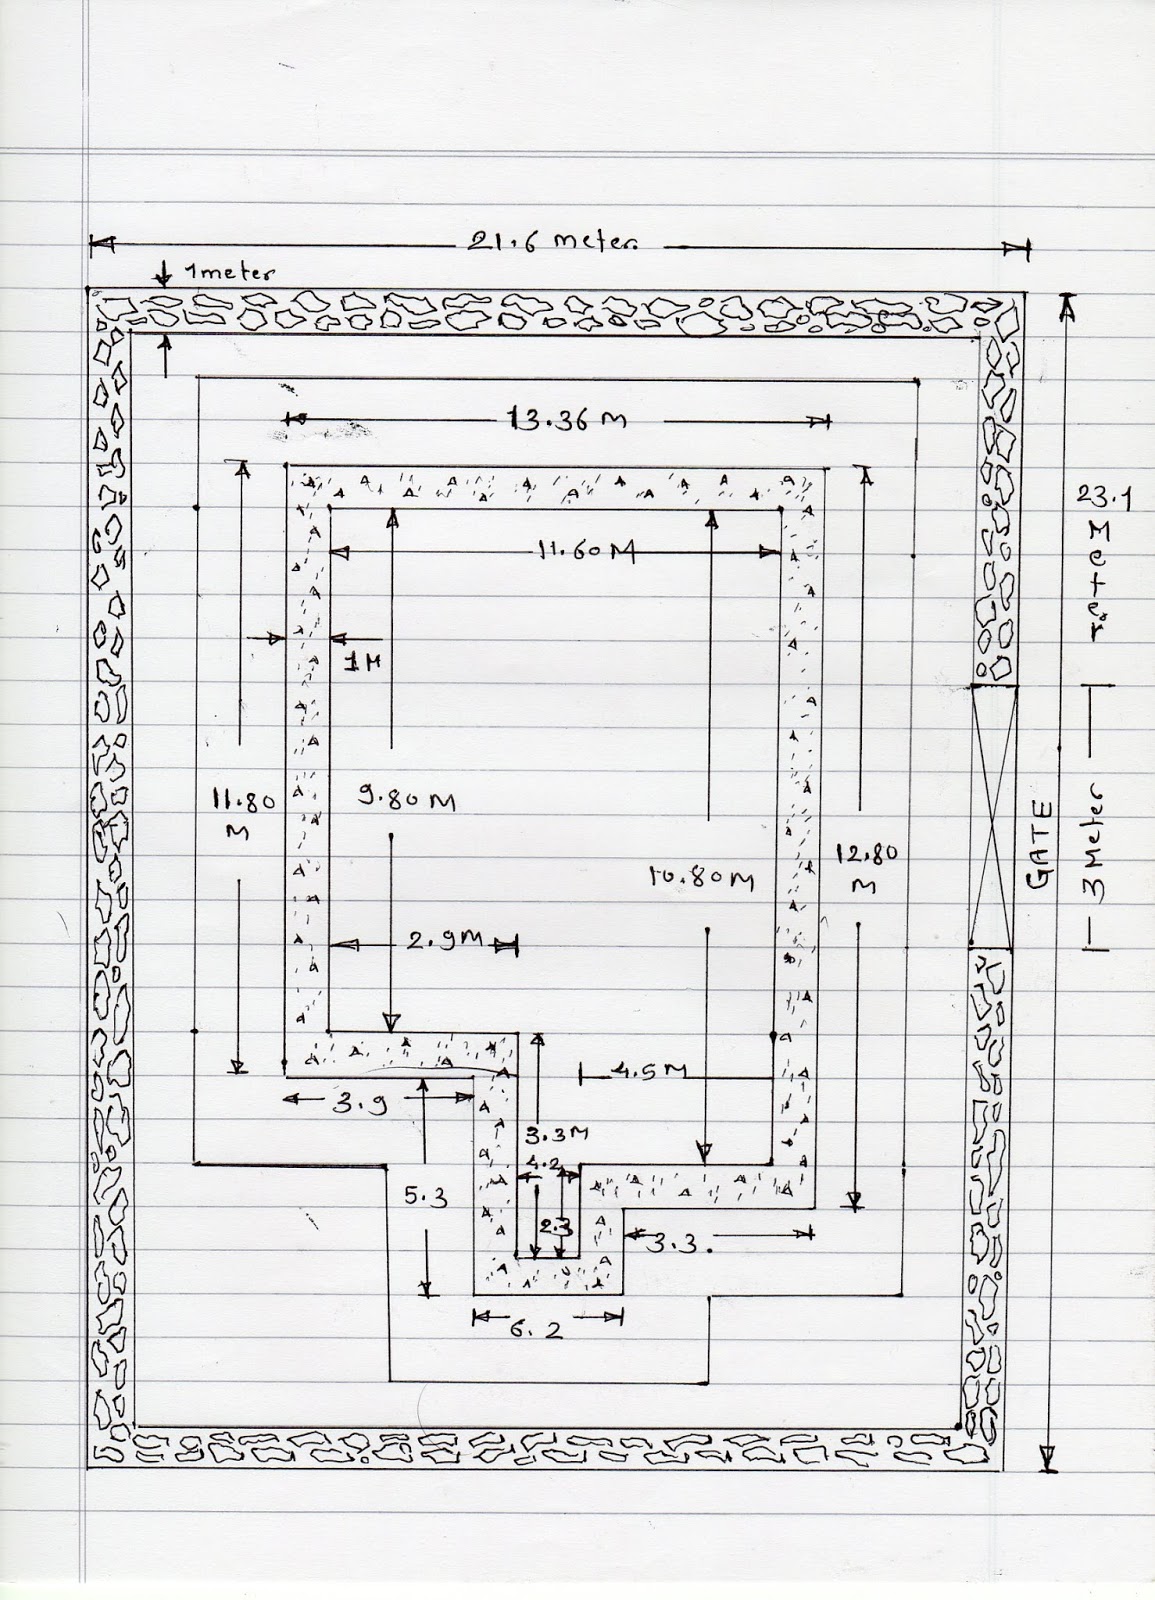 21.6 meter
1 meter
13.36 M
23.1
Meter
11.60 M
1 M
11.80
M
9.80 M
3 Meter
GATE
12.80
M
10.80 M
2.9 M
4.5 M
3.9
3.3 M
4.2
5.3
2.3
3.3.
6.2